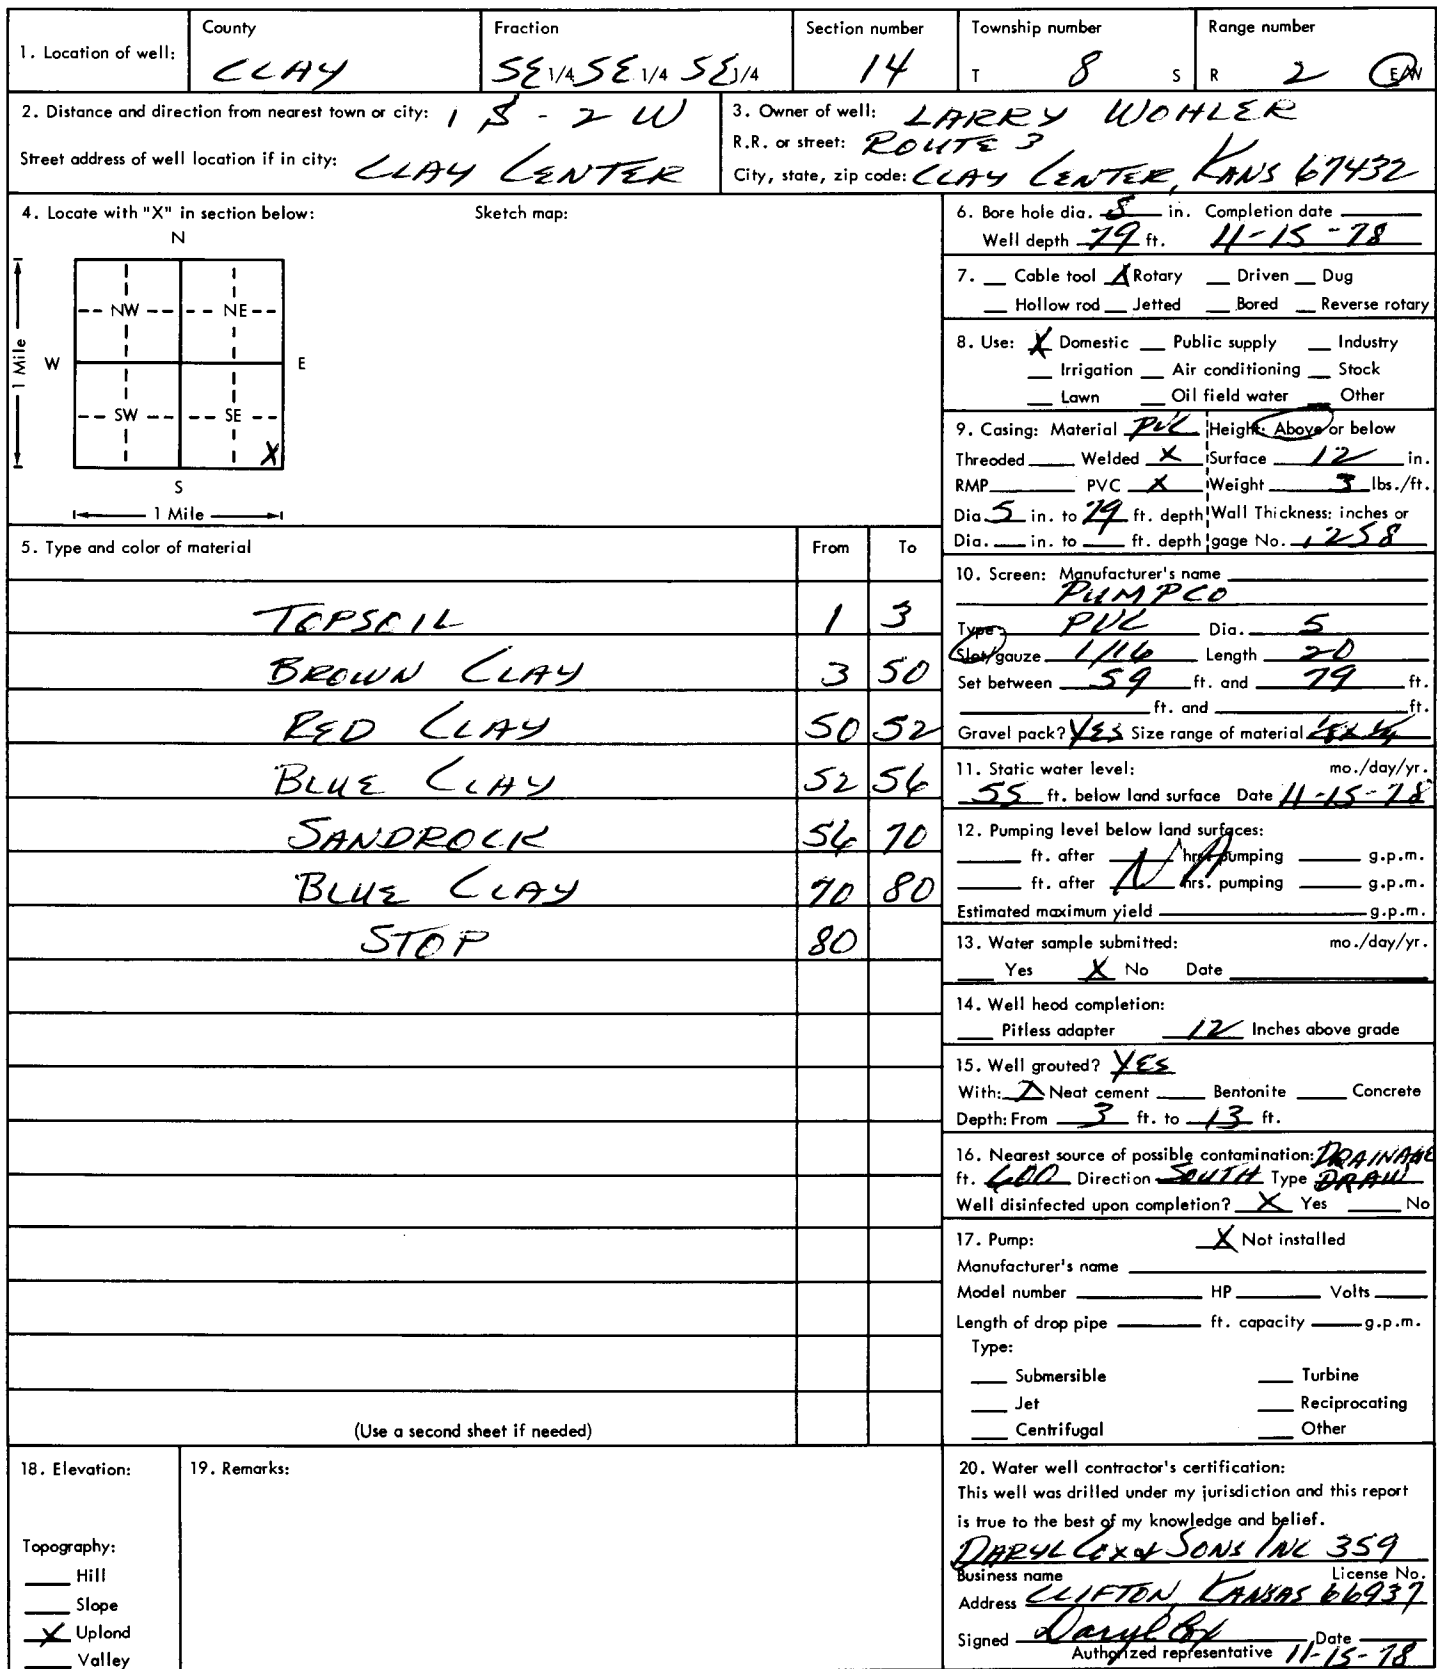 1. Location of well:
County
CLAY
Fraction
SE 1/4 SE 1/4 SE 1/4
Section number
14
Township number
T 8 S
Range number
R 2 E/W
2. Distance and direction from nearest town or city: 1 S - 2 W
Street address of well location if in city: CLAY CENTER
3. Owner of well: LARRY WOHLER
R.R. or street: ROUTE 3
City, state, zip code: CLAY CENTER, KANS 67432
4. Locate with "X" in section below:
Sketch map:
N
NW NE
W E
1 Mile
SW SE
X
S
1 Mile
5. Type and color of material From To
TOPSOIL 1 3
BROWN CLAY 3 50
RED CLAY 50 52
BLUE CLAY 52 56
SANDROCK 56 70
BLUE CLAY 70 80
STOP 80
(Use a second sheet if needed)
6. Bore hole dia. 8 in. Completion date
Well depth 79 ft. 11-15-78
7. Cable tool X Rotary Driven Dug
Hollow rod Jetted Bored Reverse rotary
8. Use: X Domestic Public supply Industry
Irrigation Air conditioning Stock
Lawn Oil field water Other
9. Casing: Material PVC Height: Above or below
Threaded Welded X Surface 12 in.
RMP PVC X Weight 3 lbs./ft.
Dia. 5 in. to 79 ft. depth Wall Thickness: inches or
Dia. in. to ft. depth gage No. .258
10. Screen: Manufacturer's name
PUMPCO
Type PVC Dia. 5
Slot/gauze 1/16 Length 20
Set between 59 ft. and 79 ft.
ft. and ft.
Gravel pack? YES Size range of material
11. Static water level: mo./day/yr.
55 ft. below land surface Date 11-15-78
12. Pumping level below land surfaces:
ft. after hrs. pumping g.p.m.
NA
ft. after hrs. pumping g.p.m.
Estimated maximum yield g.p.m.
13. Water sample submitted: mo./day/yr.
Yes X No Date
14. Well head completion:
Pitless adapter 12 Inches above grade
15. Well grouted? YES
With: X Neat cement Bentonite Concrete
Depth: From 3 ft. to 13 ft.
16. Nearest source of possible contamination: DRAINAGE
ft. 600 Direction SOUTH Type DRAW
Well disinfected upon completion? X Yes No
17. Pump: X Not installed
Manufacturer's name
Model number HP Volts
Length of drop pipe ft. capacity g.p.m.
Type:
Submersible Turbine
Jet Reciprocating
Centrifugal Other
18. Elevation:
Topography:
Hill
Slope
X Upland
Valley
19. Remarks:
20. Water well contractor's certification:
This well was drilled under my jurisdiction and this report
is true to the best of my knowledge and belief.
DARYL COX & SONS INC 359
Business name License No.
Address CLIFTON, KANSAS 66937
Signed Daryl Cox Date
Authorized representative 11-15-78